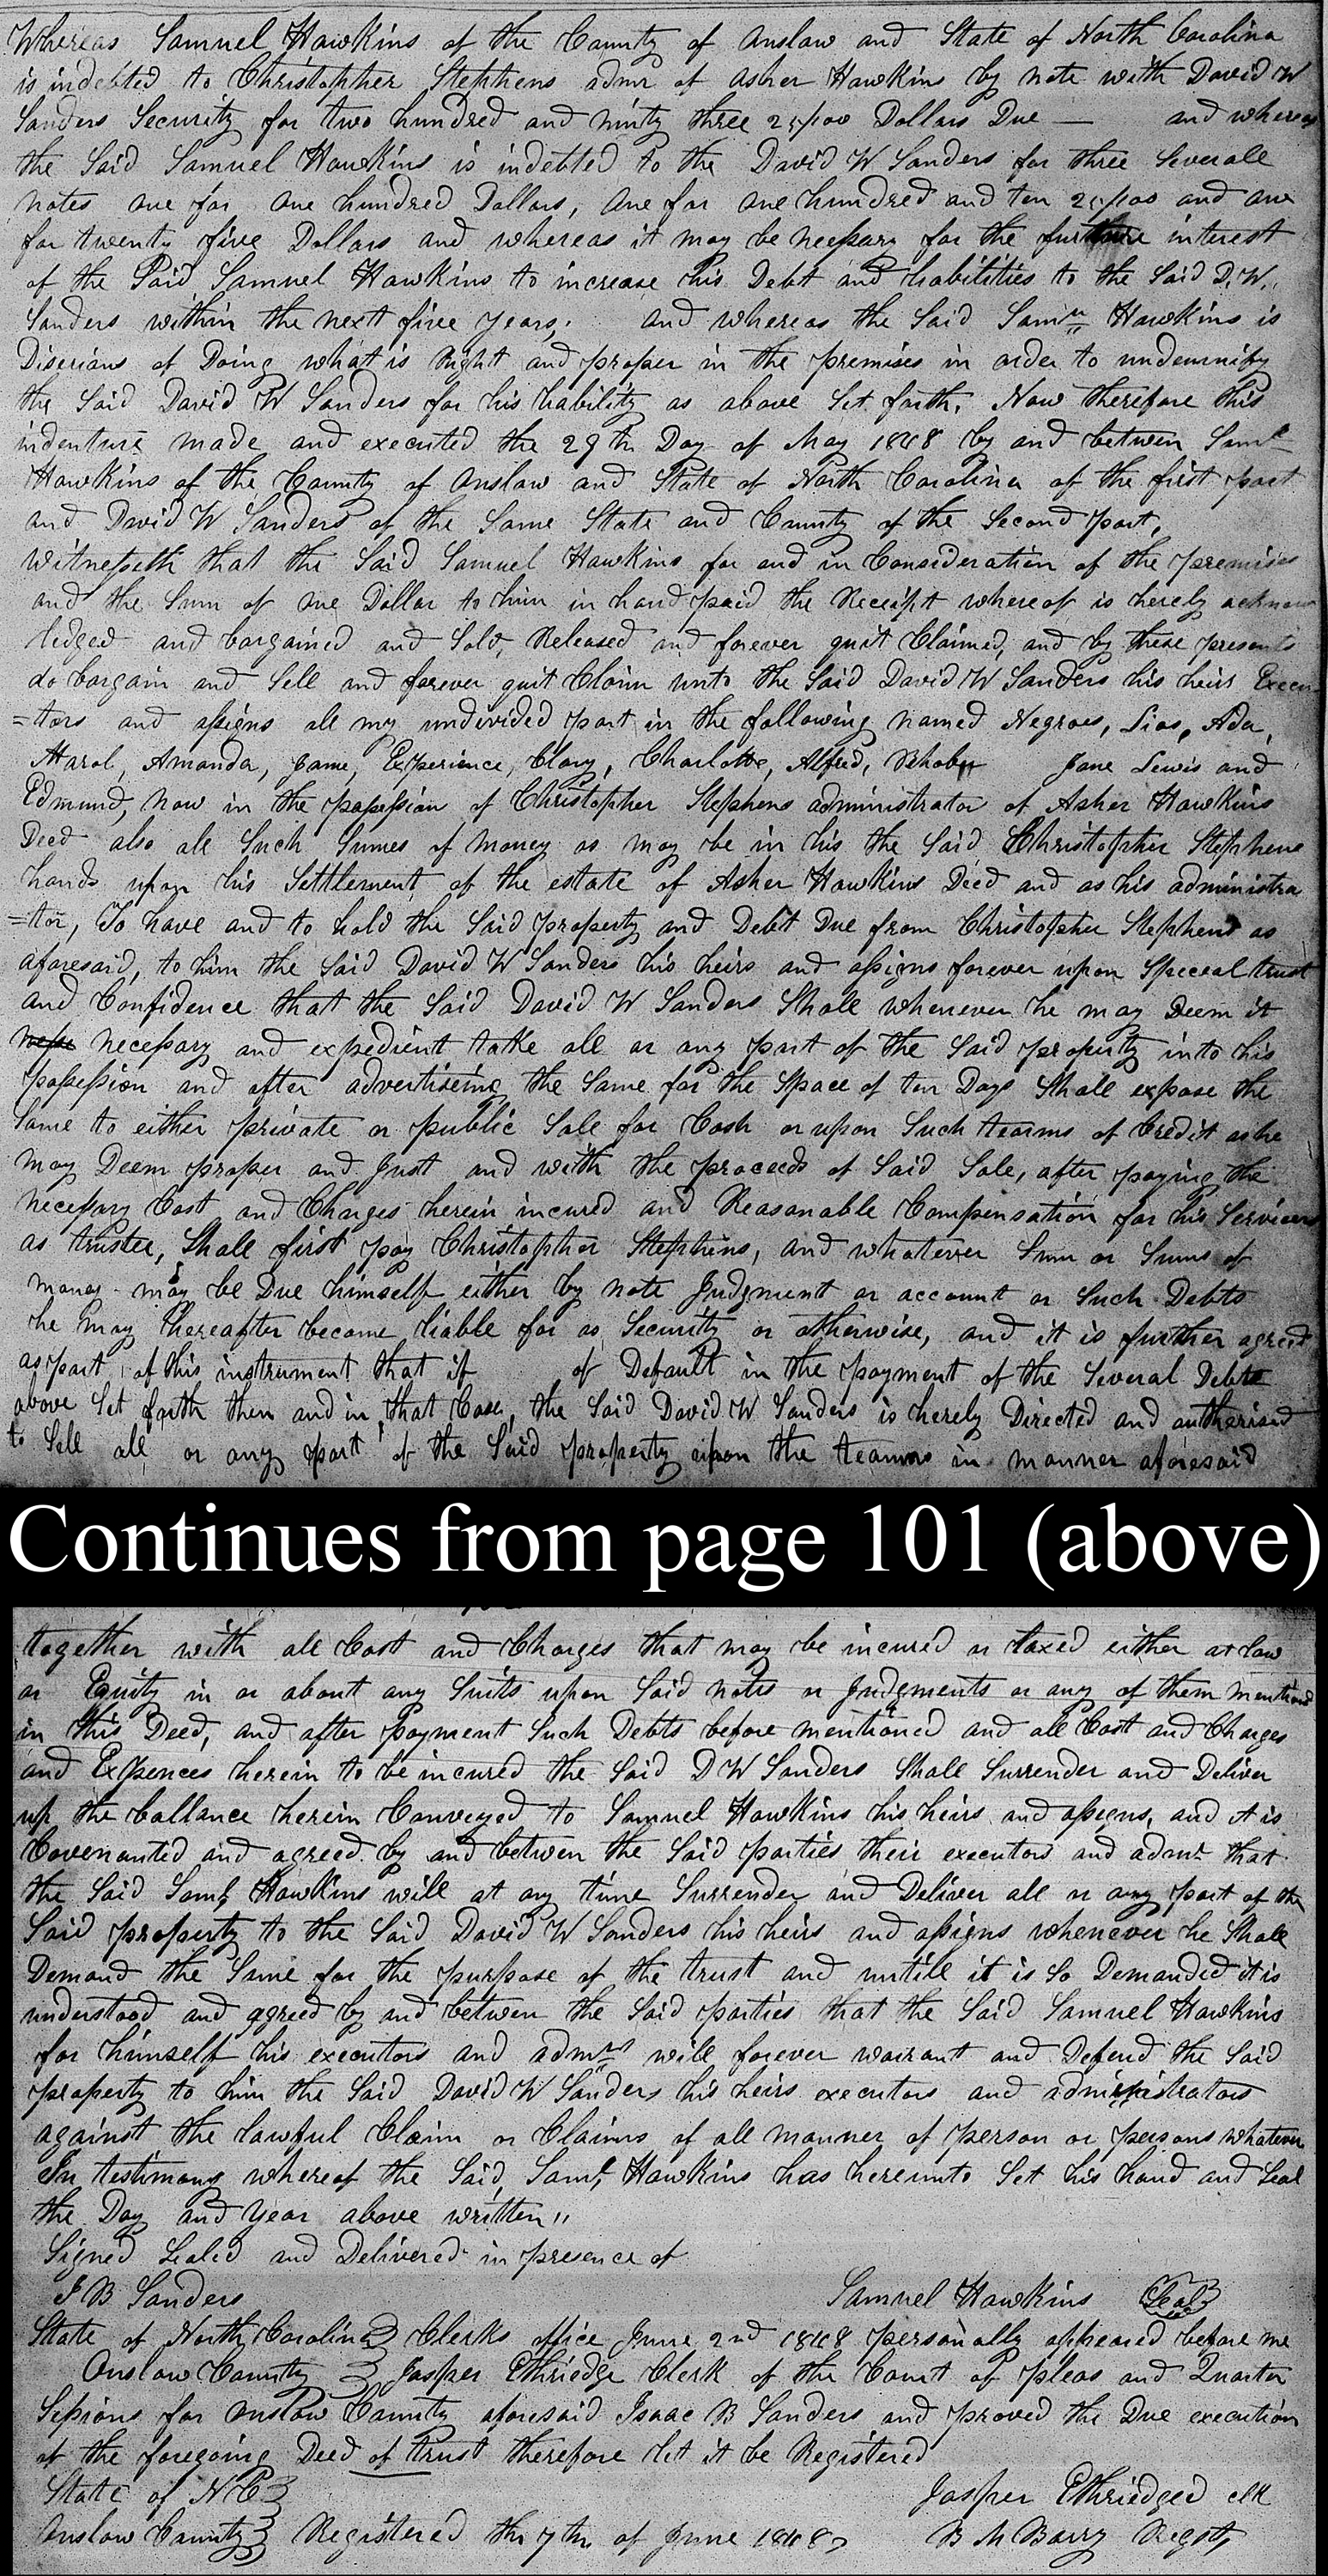 Whereas Samuel Hawkins of the County of Onslow and State of North Carolina
is indebted to Christopher Stephens admr of Asher Hawkins by note with David W
Sanders Security for two hundred and ninty three 25/100 Dollars Due — and whereas
the Said Samuel Hawkins is indebted to the David W Sanders for three Severale
notes one for one hundred Dollars, one for one hundred and ten 25/100 and one
for twenty five Dollars and whereas it may be necessary for the interest
of the Said Samuel Hawkins to increase his Debt and liabilities to the Said D. W.
Sanders within the next five years, and whereas the Said Saml Hawkins is
Disirious of Doing what is Right and proper in the premises in order to undemnify
the Said David W Sanders for his liability as above Set forth. Now therefore this
indenture made and executed the 29th Day of May 1848 by and betwen Saml
Hawkins of the County of Onslow and State of North Carolina of the first part
and David W Sanders of the Same State and County of the Second part,
witnesseth that the Said Samuel Hawkins for and in Consideration of the premises
and the Sum of one Dollar to him in hand paid the Receipt whereof is hereby acknow
ledged and bargained and Sold, Released and forever quit Claimed, and by these presents
do bargain and Sell and forever quit Claim unto the Said David W Sanders his heirs Execu
=tors and assigns all my undivided part in the following named Negroes, Ada,
Amanda, Experience, Clary, Charlotte, Alfred, Jane Lewis and
Edmund, now in the possession of Christopher Stephens administrator of Asher Hawkins
Deed also all Such Sumes of money as may be in his the Said Christopher Stephens
hands upon his Settlement of the estate of Asher Hawkins Deed and as his administra
=tor, To have and to hold the Said property and Debt Due from Christopher Stephens as
aforesaid, to him the Said David W Sanders his heirs and assigns forever upon Special trust
and Confidence that the Said David W Sanders Shall whenever he may Deem it
necessary and expedient take all or any part of the Said property into his
possession and after advertiseing the Same for the Space of ten Days Shall expose the
Same to either private or public Sale for Cash or upon Such tearms of Credit as he
may Deem proper and Just and with the proceeds of Said Sale, after paying the
necessary Cost and Charges herein incured and Reasonable Compensation for his Services
as trustee, Shall first pay Christopher Stephens, and whatever Sum or Sums of
money may be Due himself either by note Judgment or account or Such Debts
he may thereafter become liable for as Security or otherwise, and it is further agreed
as part of this instrument that if of Default in the payment of the Several Debts
above Set forth then and in that Case, the Said David W Sanders is hereby Directed and autherised
to Sell all or any part of the Said property upon the tearms in manner aforesaid
Continues from page 101 (above)
together with all Cost and Charges that may be incured or taxed either at law
or Equity in or about any Suits upon Said notes or Judgments or any of them mentiond
in this Deed, and after payment Such Debts before mentioned and all Cost and Charges
and Expences herein to be incured the Said D W Sanders Shall Surrender and Deliver
up the ballance herein Conveyed to Samuel Hawkins his heirs and assigns, and it is
Covenanted and agreed by and betwen the Said parties their executors and admr that
the Said Saml Hawkins will at any time Surrender and Deliver all or any part of the
Said property to the Said David W Sanders his heirs and assigns whenever he Shall
Demand the Same for the purpose of the trust and untill it is So Demanded it is
understood and agreed by and betwen the Said parties that the Said Samuel Hawkins
for himself his executors and admrs will forever warrant and Defend the Said
property to him the Said David W Sanders his heirs executors and administrators
against the lawful Claim or Claims of all manner of person or persons whatever
In testimony whereof the Said, Saml Hawkins has hereunto Set his hand and Seal
the Day and year above written,,
Signed Sealed and Delivered in presence of
I B Sanders Samuel Hawkins Seal
State of North Carolina Clerks office June 2nd 1848 personally appeared before me
Onslow County Jasper Ethriedge Clerk of the Court of pleas and Quarter
Sessions for Onslow County aforesaid Isaac B Sanders and proved the Due execution
of the foregoing Deed of trust therefore let it be Registered
State of N C Jasper Ethriedged clk
Onslow County Registered the 7th of June 1848, B M Barry Regstr